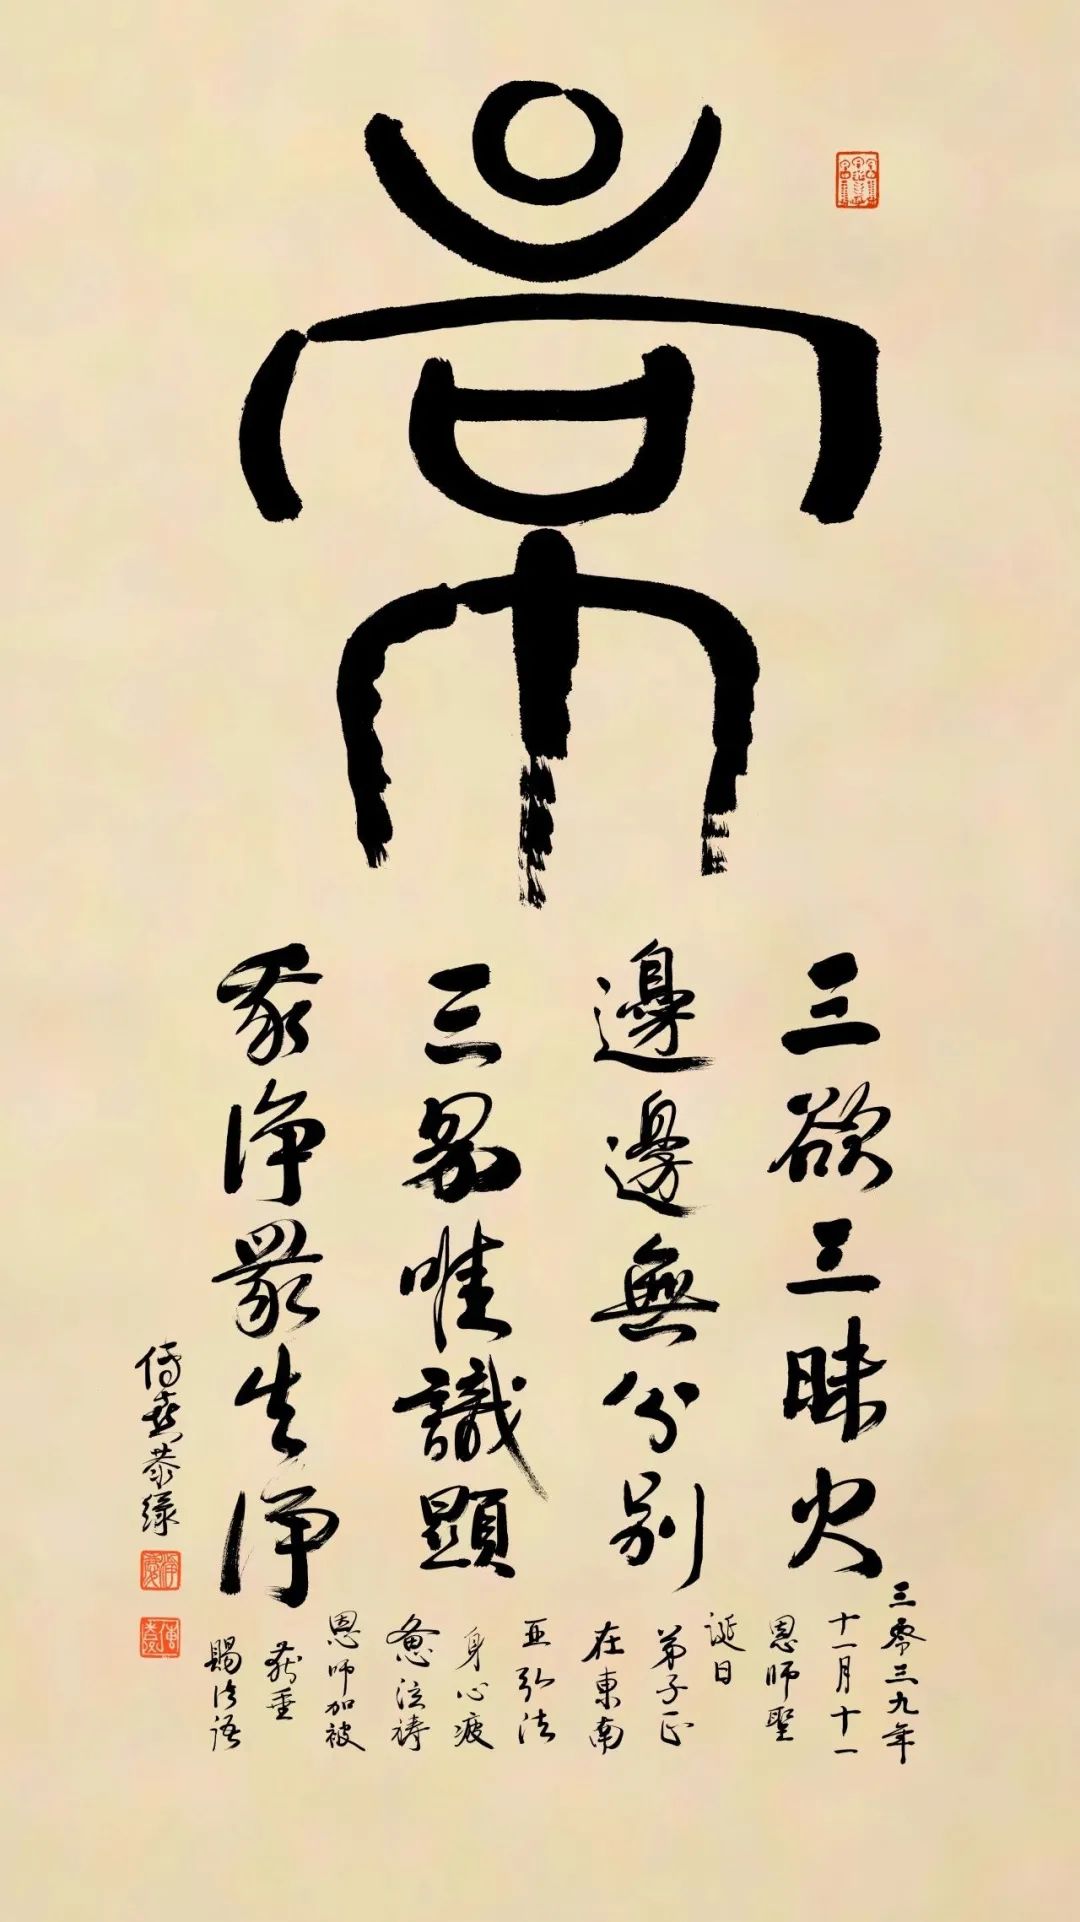 常
三欲三昧火
邊邊無分别
三界唯識顯
净眾生净
三零三九年
十一月十一
恩師聖
誕日
弟子正
在東南
亞弘法
身心疲
憊泣祷
恩師加被
垂
賜法語
傳喜恭録
傳喜